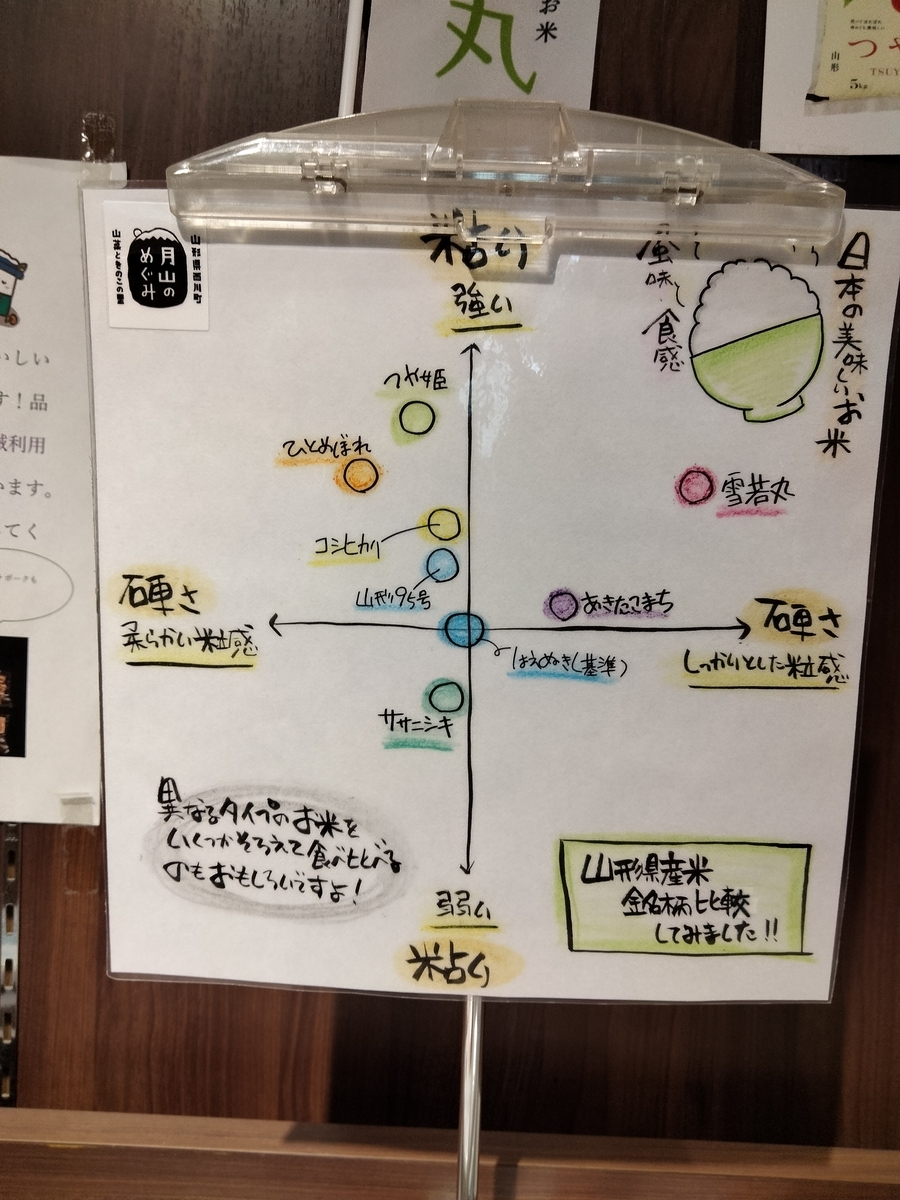 お米
丸
つや
TSUY
山形
5kg
山形県西川町
月山の
めぐみ
山菜ときのこの里
粘り
強い
日本の美味しいお米
風味
食感
つや姫
ひとめぼれ
雪若丸
コシヒカリ
山形95号
硬さ
柔らかい粒感
あきたこまち
硬さ
しっかりとした粒感
はえぬき(基準)
ササニシキ
異なるタイプのお米を
いくつかそろえて食べくらべる
のもおもしろいですよ!
弱い
粘り
山形県産米
銘柄比較
してみました!!
いしい
す!品
域利用
います。
ってく